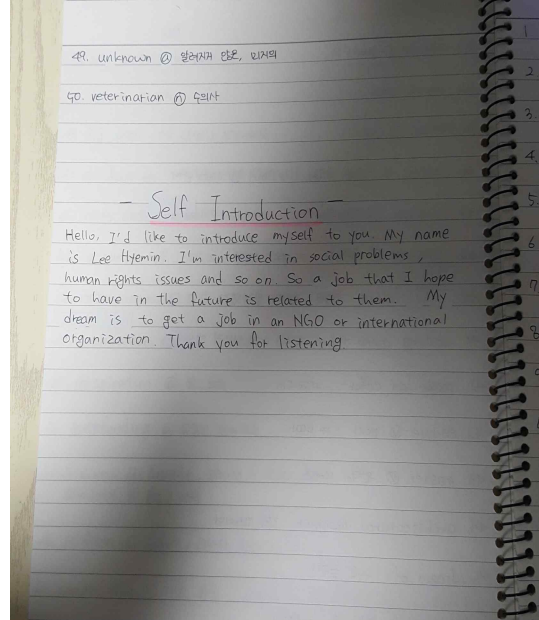 49. unknown ⓐ 알려지지 않은, 미지의
50. veterinarian ⓝ 수의사
- Self Introduction -
Hello, I'd like to introduce myself to you. My name
is Lee Hyemin. I'm interested in social problems,
human rights issues and so on. So a job that I hope
to have in the future is related to them. My
dream is to get a job in an NGO or international
organization. Thank you for listening
1
2
3.
4.
5.
6
7
8